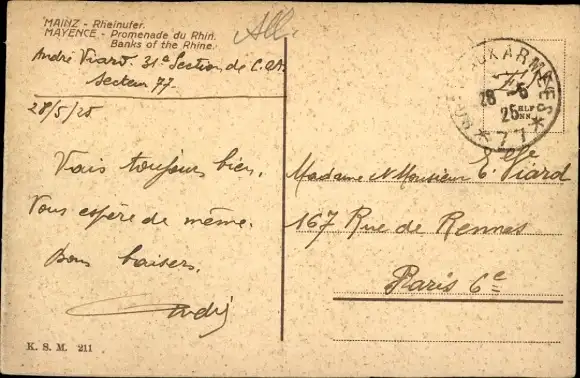 MAINZ - Rheinufer.
MAYENCE - Promenade du Rhin.
Banks of the Rhine.
All.
André Viard. 31e Section de C.O.A.
Secteur 77.
28/5/25
Vais toujours bien.
Vous espère de même.
Bons baisers.
André
K. S. M. 211
AUX ARMEES
28 -5
25
* 77 *
F
Madame & Monsieur E. Viard
167 Rue de Rennes
Paris 6e